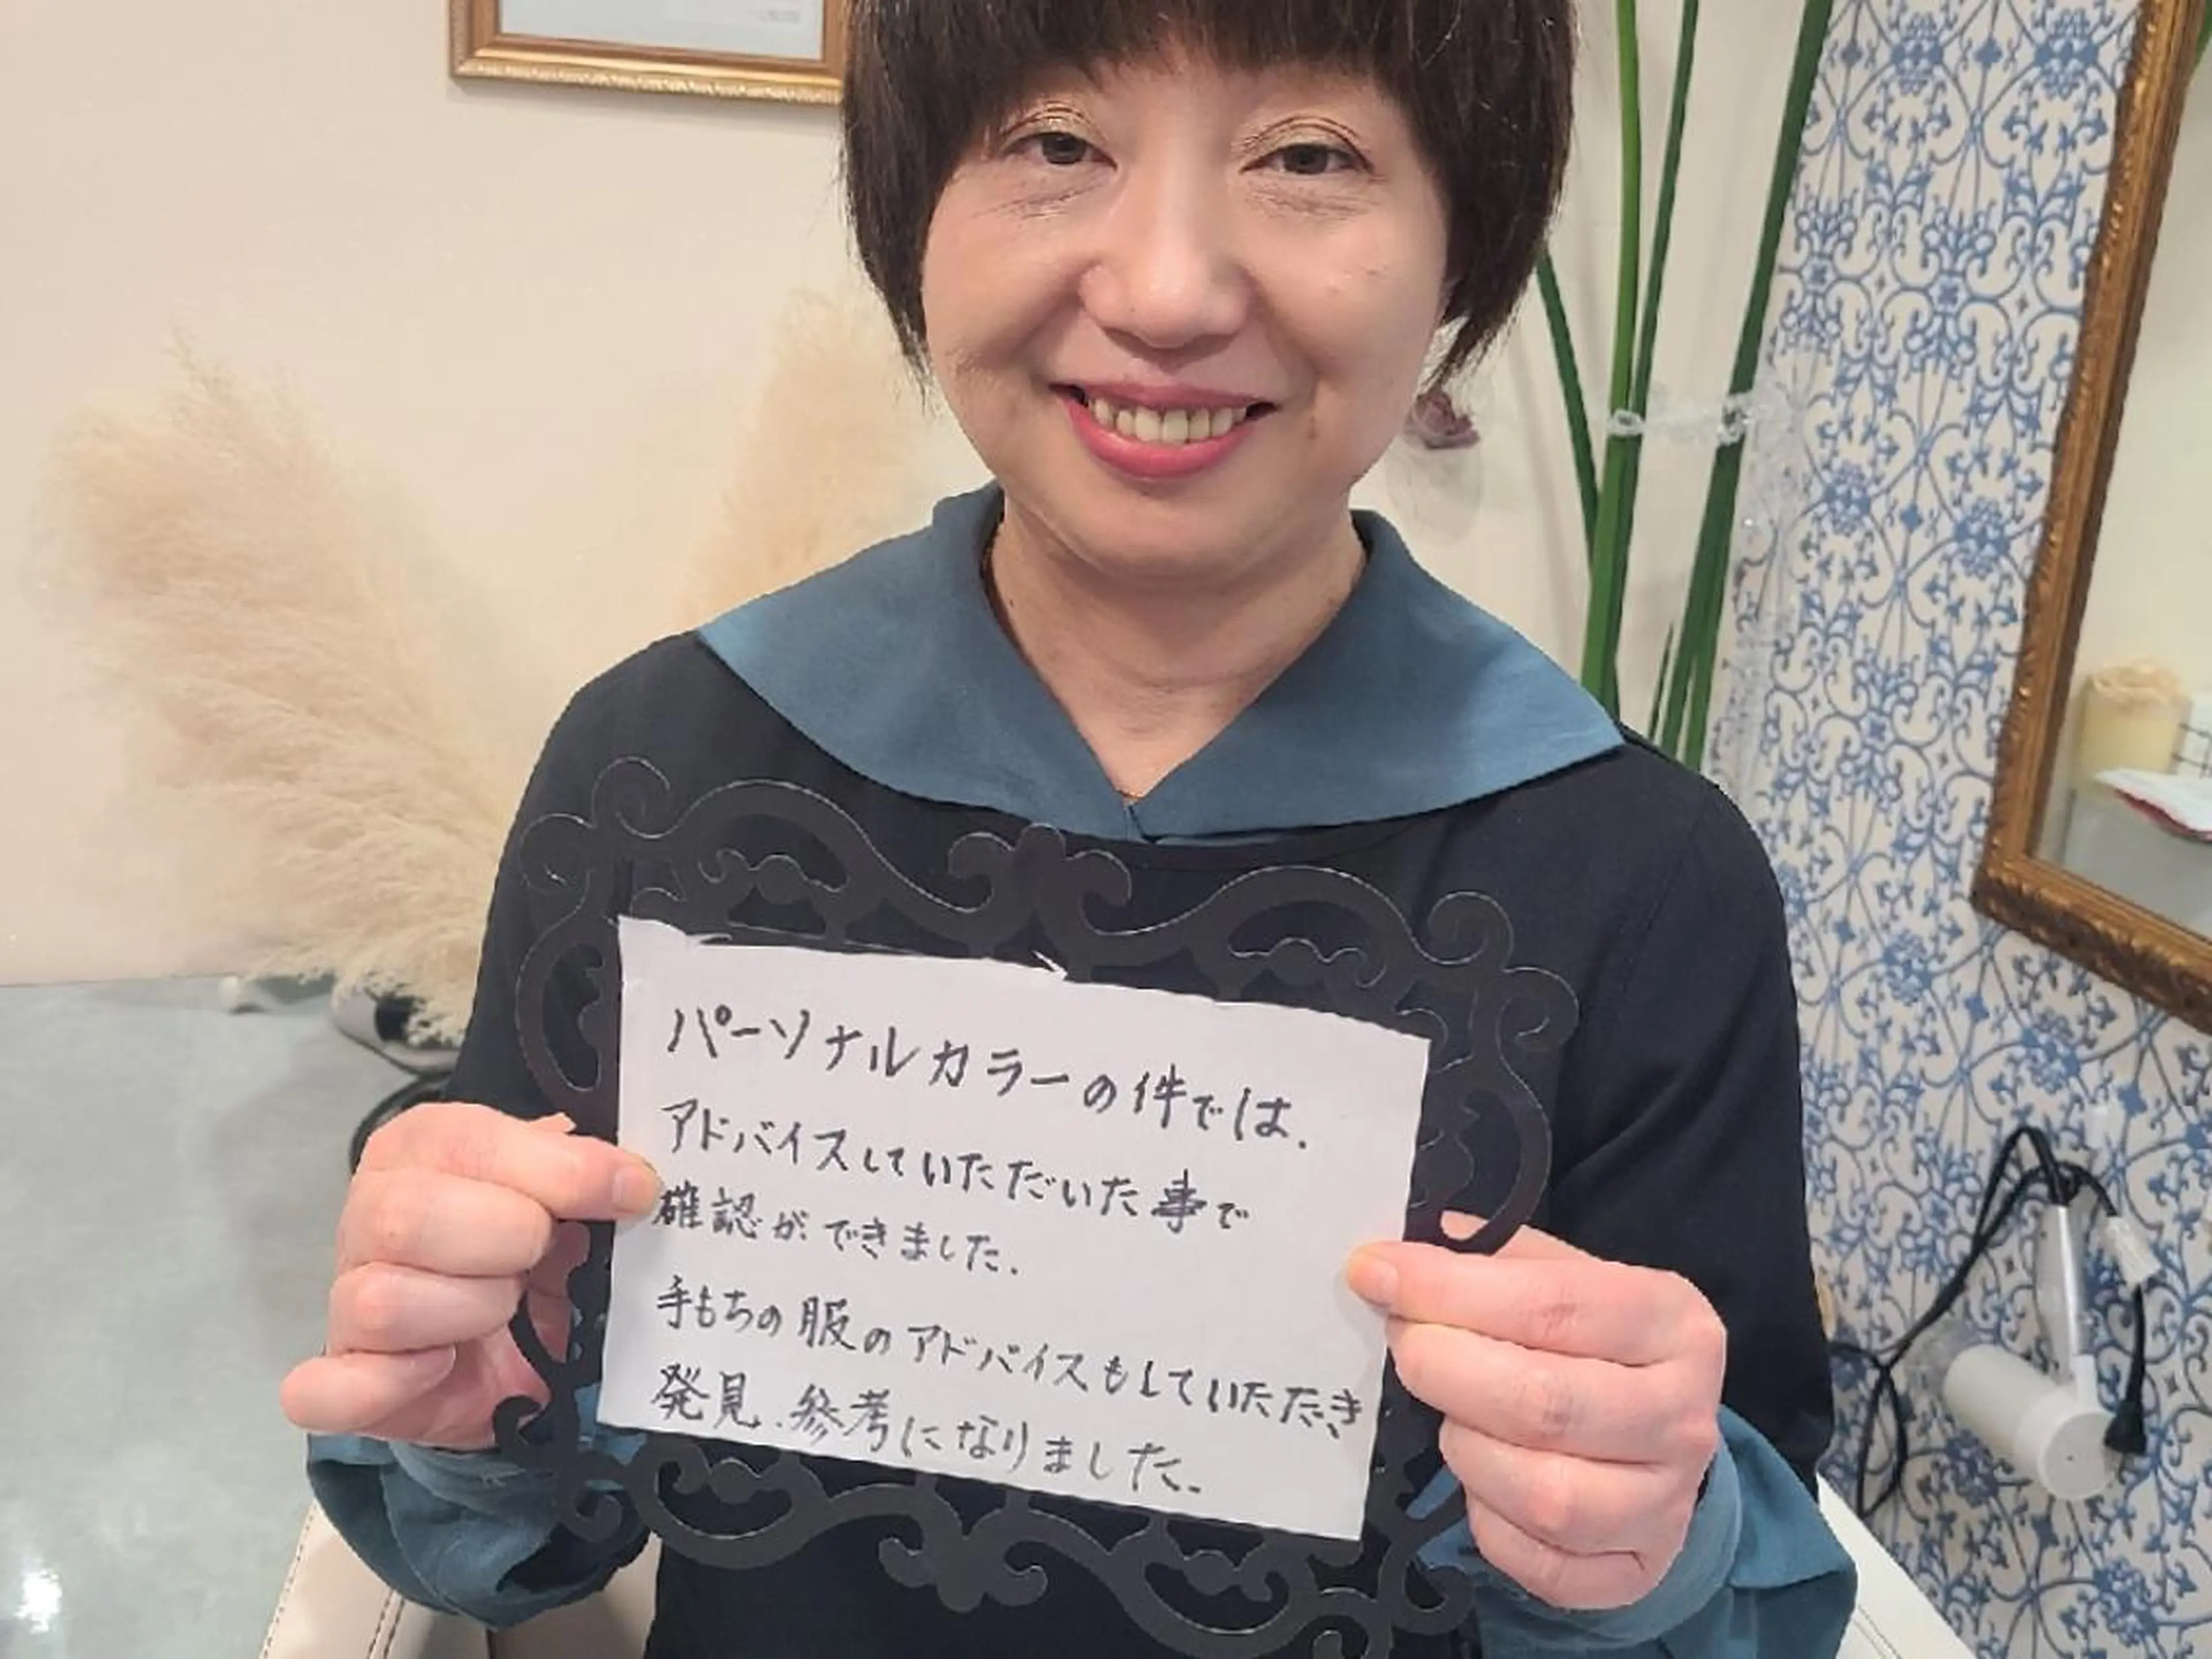 パーソナルカラーの件では、
アドバイスしていただいた事で
確認ができました。
手もちの服のアドバイスもしていただき
発見、参考になりました。